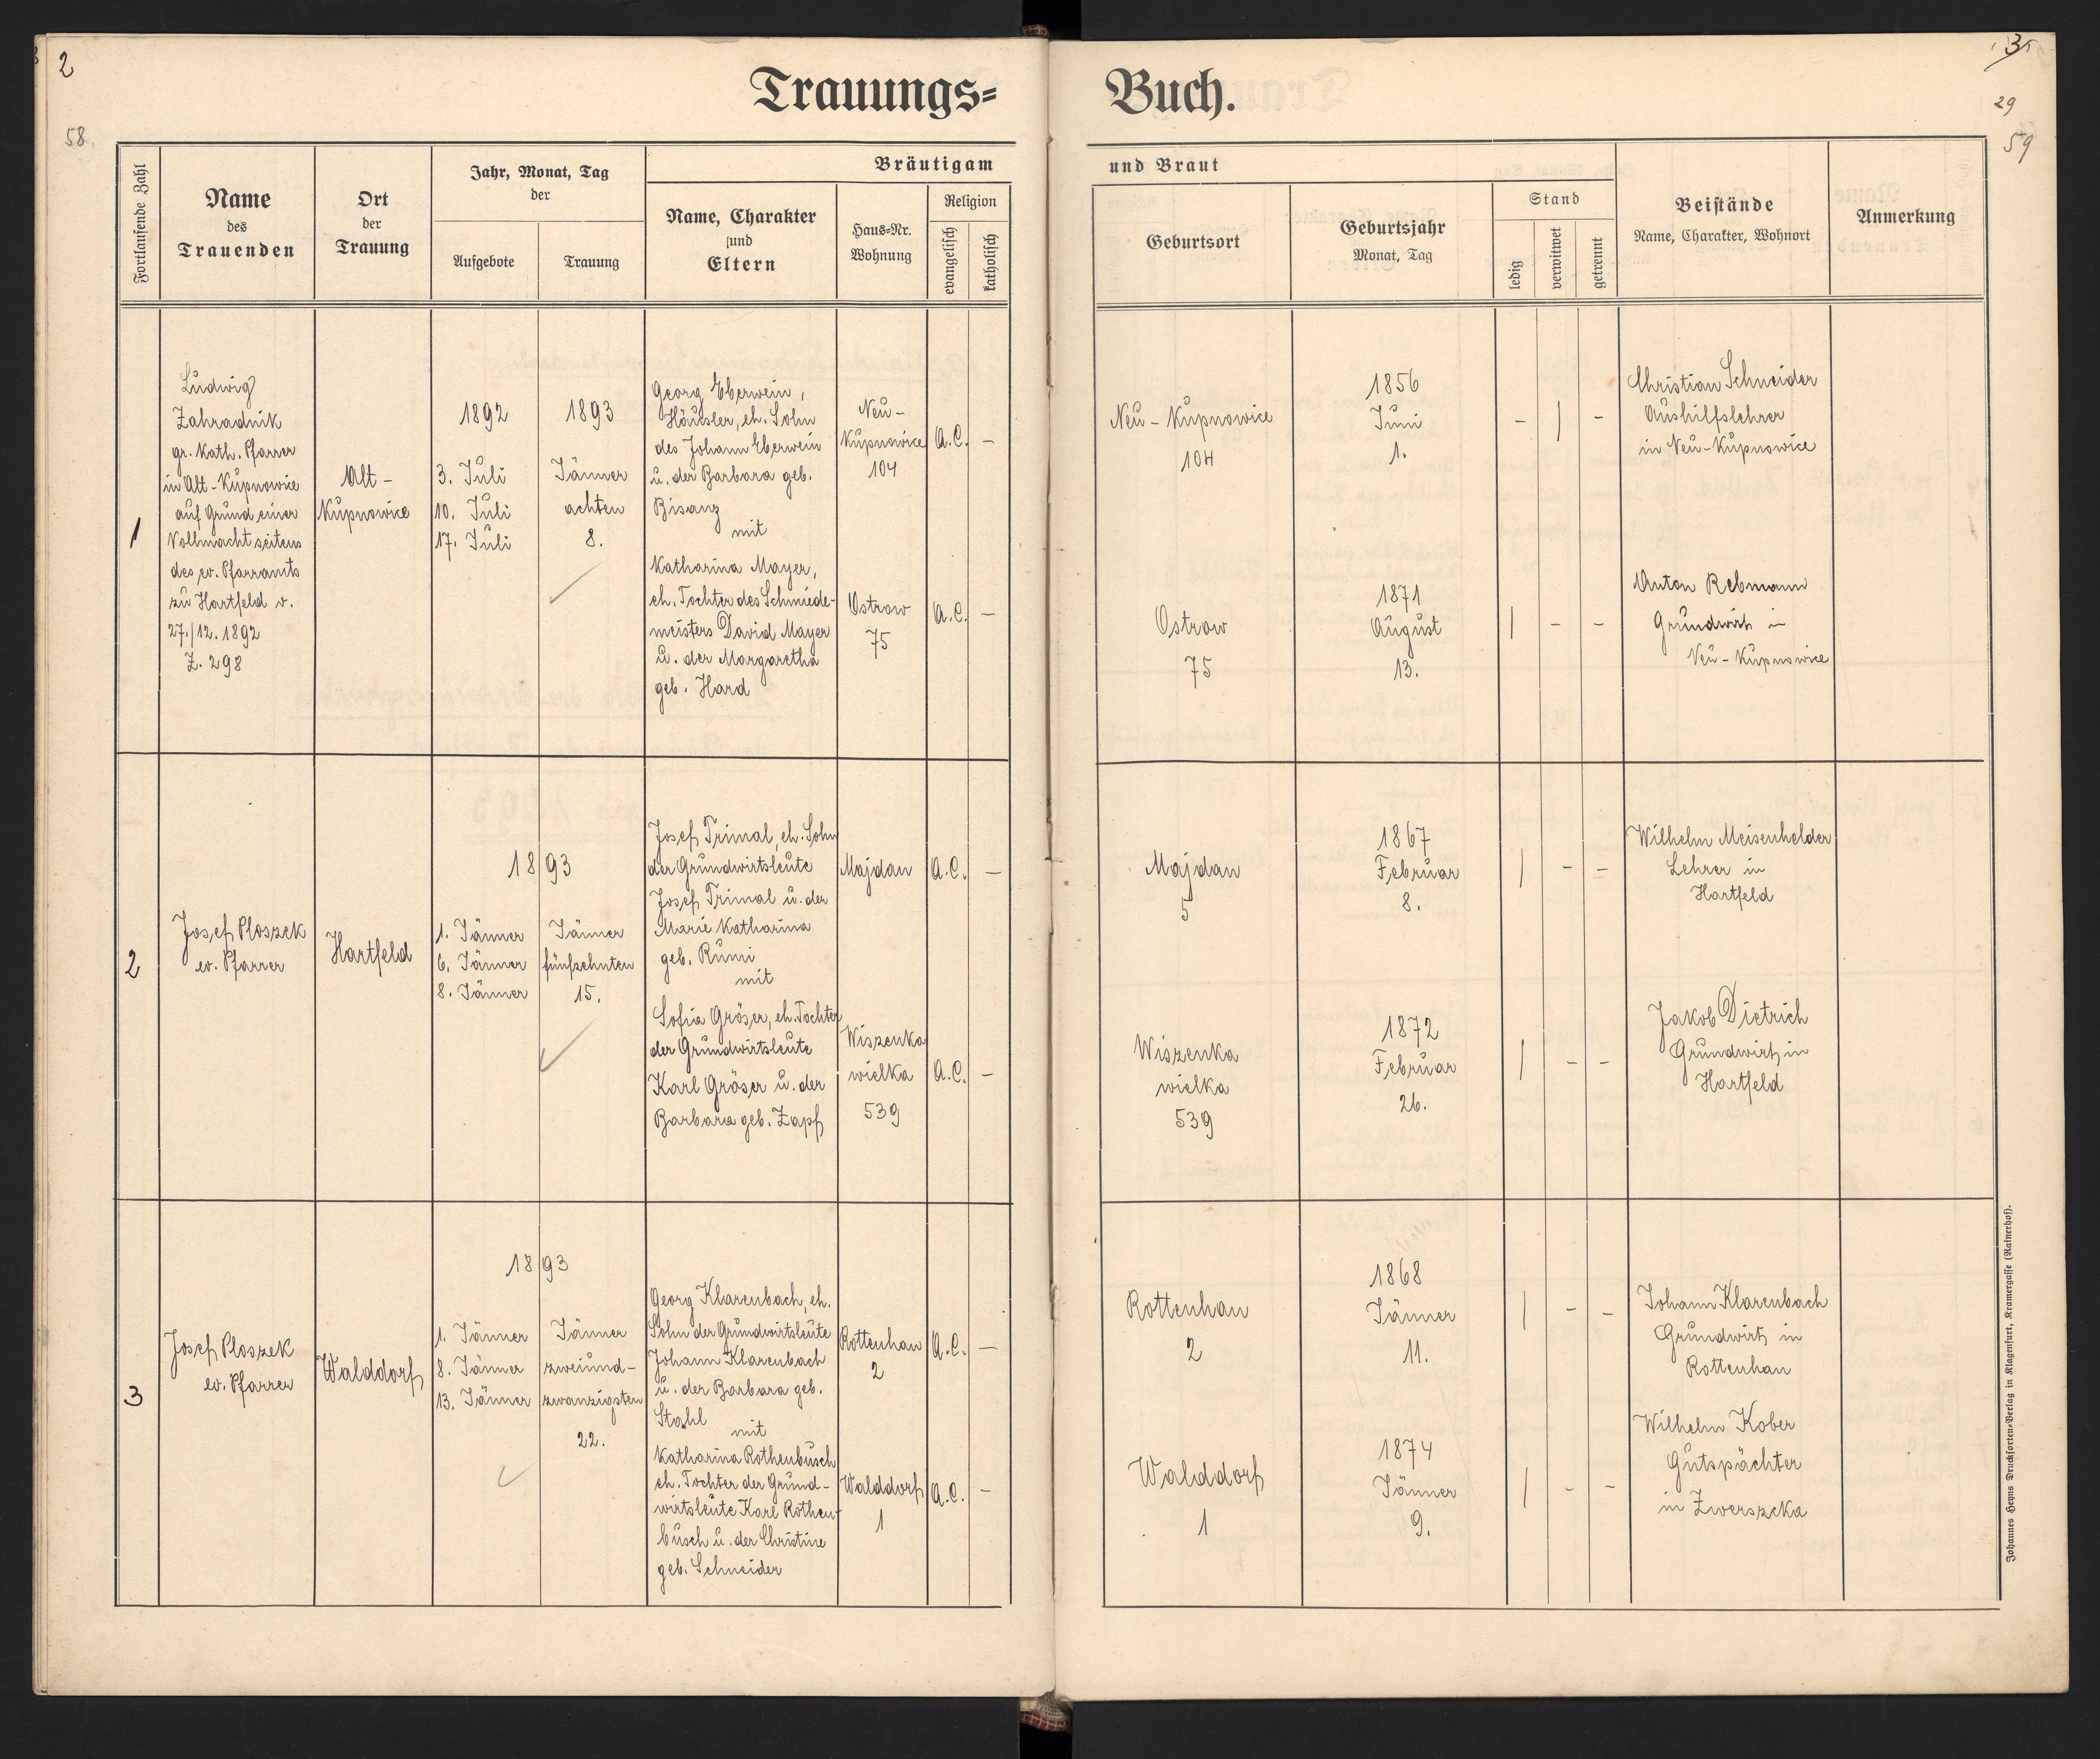 2
58.
Trauungs=
Buch.
3
29
59
Fortlaufende Zahl
Name
des
Trauenden
Ort
der
Trauung
Jahr, Monat, Tag
der
Aufgebote
Trauung
Bräutigam
Name, Charakter
und
Eltern
Haus=Nr.
Wohnung
Religion
evangelisch
katholisch
und Braut
Geburtsort
Geburtsjahr
Monat, Tag
Stand
ledig
verwitwet
getrennt
Beistände
Name, Charakter, Wohnort
Anmerkung
1
Ludwig
Zahradnik
gr. kath. Pfarrer
in Alt-Kupnowice
auf Grund einer
Vollmacht seitens
des ev. Pfarramts
zu Hartfeld v.
27./12. 1892
Z. 298
Alt-
Kupnowice
1892
3. Juli
10. Juli
17. Juli
1893
Jänner
achten
8.
Georg Eberwein,
Häusler, eh. Sohn
des Johann Eberwein
u. der Barbara geb.
Bisanz
mit
Katharina Mayer,
eh. Tochter des Schmiede-
meisters David Mayer
u. der Margaretha
geb. Hard
Neu-
Kupnowice
104
A.C. –
Ostrow
75
A.C. –
Neu-Kupnowice
104
1856
Juni
1.
– | –
Ostrow
75
1871
August
13.
| – –
Christian Schneider
Aushilfslehrer
in Neu-Kupnowice
Anton Rebmann
Grundwirt in
Neu-Kupnowice
2
Josef Ploszek
ev. Pfarrer
Hartfeld
1893
1. Jänner
6. Jänner
8. Jänner
Jänner
fünfzehnten
15.
Josef Trimal, eh. Sohn
der Grundwirtsleute
Josef Trimal u. der
Marie Katharina
geb. Rumi
mit
Sofia Gröser, eh. Tochter
der Grundwirtsleute
Karl Gröser u. der
Barbara geb. Zapf
Majdan
A.C. –
Wiszenka
wielka
539
A.C. –
Majdan
5
1867
Februar
8.
| – –
Wiszenka
wielka
539
1872
Februar
26.
| – –
Wilhelm Meisenhelder
Lehrer in
Hartfeld
Jakob Dietrich
Grundwirt in
Hartfeld
3
Josef Ploszek
ev. Pfarrer
Walddorf
1893
1. Jänner
8. Jänner
13. Jänner
Jänner
zweiund-
zwanzigsten
22.
Georg Klarenbach, eh.
Sohn der Grundwirtsleute
Johann Klarenbach
u. der Barbara geb.
Stahl
mit
Katharina Rothenbusch
eh. Tochter der Grund-
wirtsleute Karl Rothen-
busch u. der Christine
geb. Schneider
Rottenhan
2
A.C. –
Walddorf
1
A.C. –
Rottenhan
2
1868
Jänner
11.
| – –
Walddorf
1
1874
Jänner
9.
| – –
Johann Klarenbach
Grundwirt in
Rottenhan
Wilhelm Kober
Gutspächter
in Zwerszcka
Johannes Heyns Drucksorten=Verlag in Klagenfurt, Kramergasse (Rainerhof).